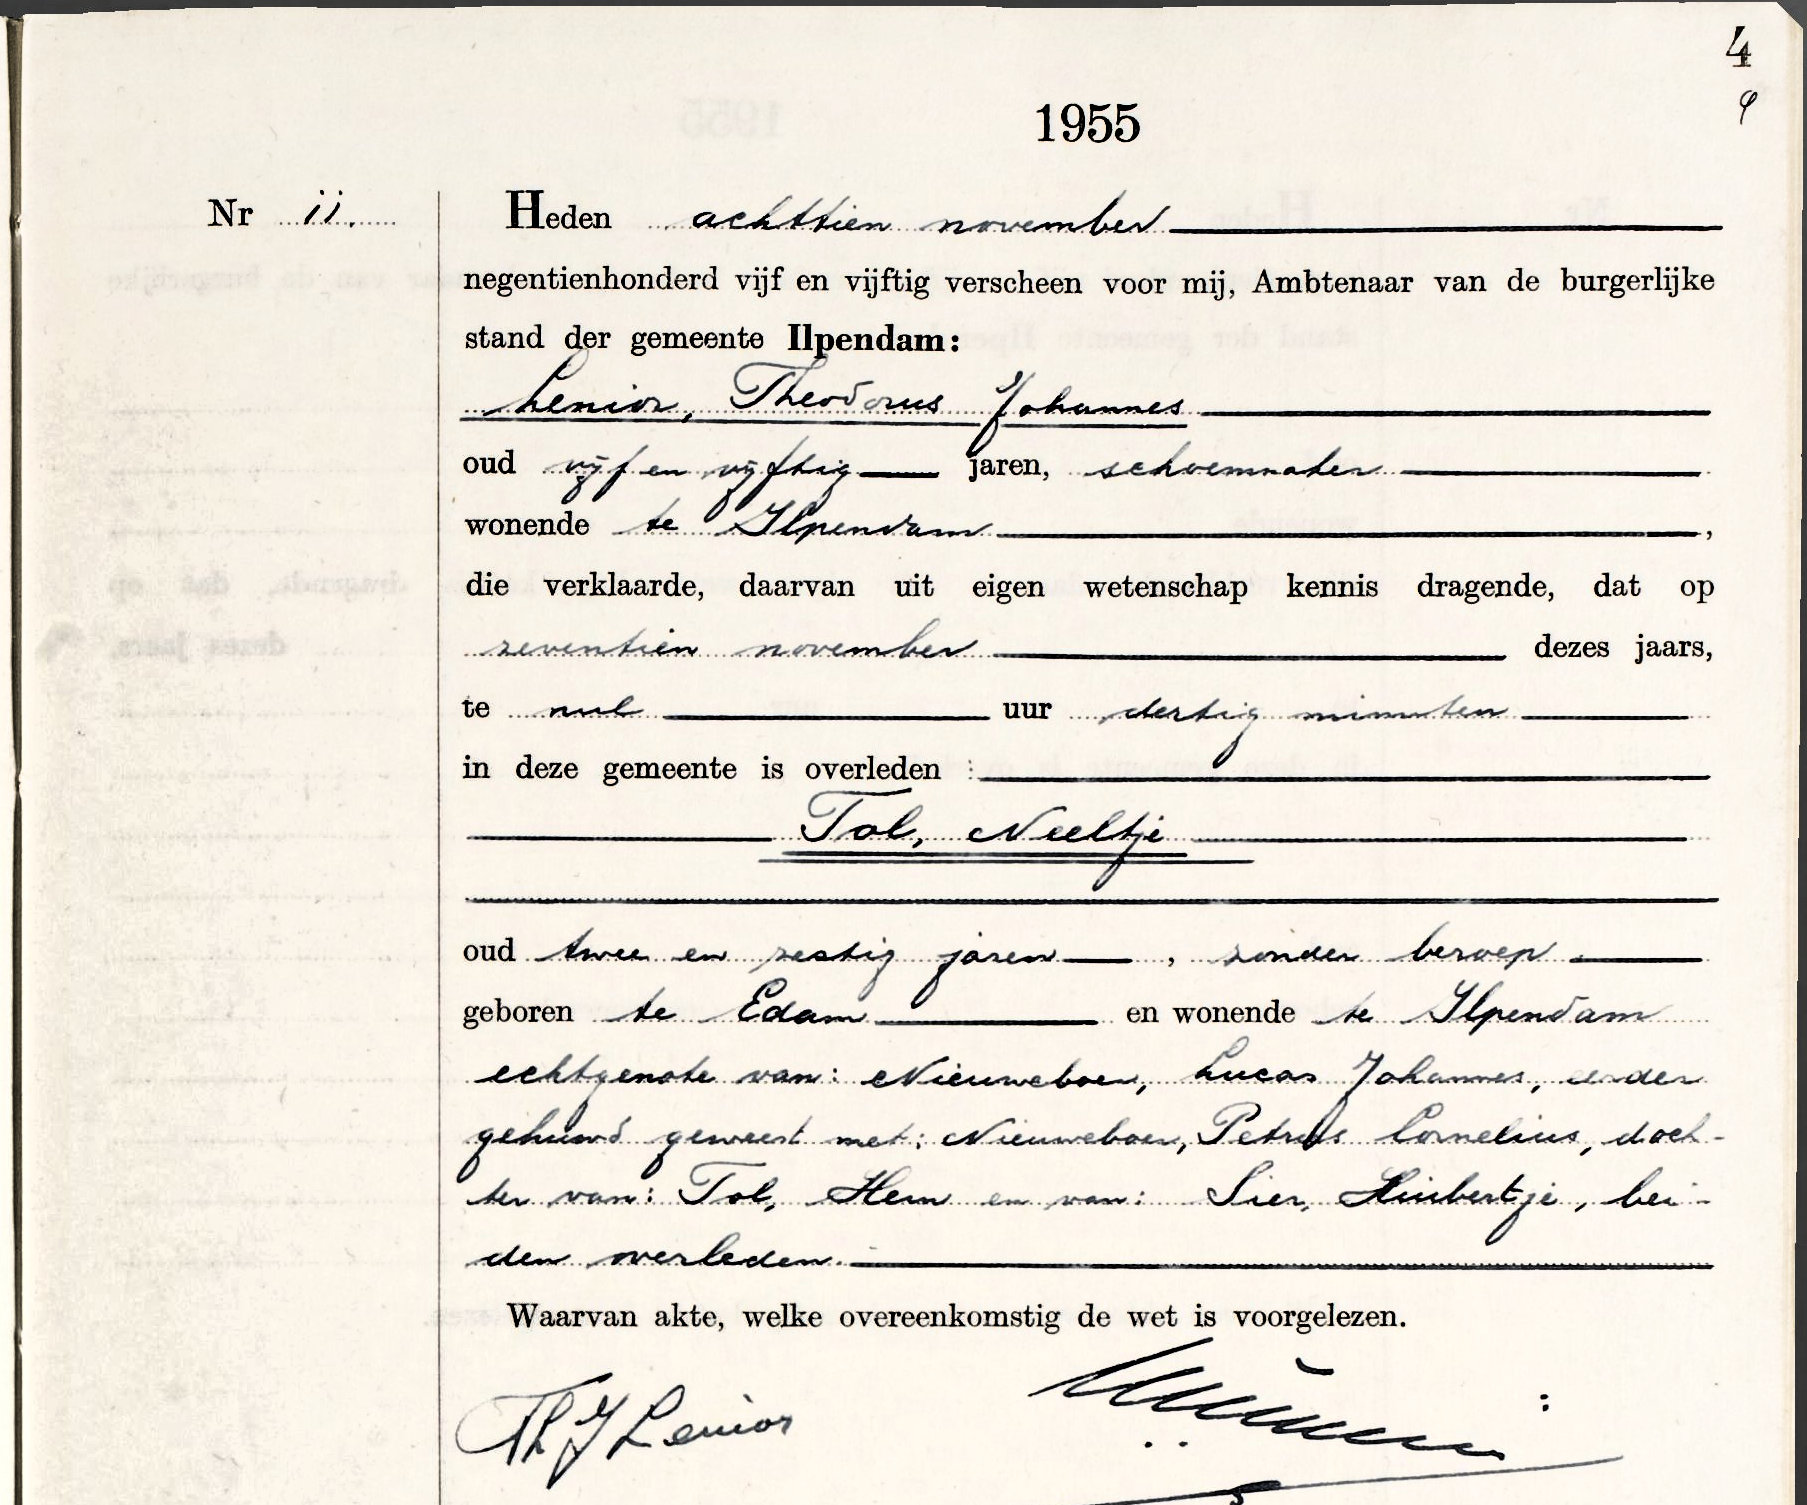 4
1955
Nr 11.
Heden achttien november
negentienhonderd vijf en vijftig verscheen voor mij, Ambtenaar van de burgerlijke
stand der gemeente Ilpendam:
Lenior, Theodorus Johannes
oud vijf en vijftig jaren, schoenmaker
wonende te Ilpendam,
die verklaarde, daarvan uit eigen wetenschap kennis dragende, dat op
zeventien november dezes jaars,
te nul uur dertig minuten
in deze gemeente is overleden :
Tol, Neeltje
oud twee en zestig jaren, zonder beroep
geboren te Edam en wonende te Ilpendam
echtgenote van: Nieuweboer, Lucas Johannes, eerder
gehuwd geweest met: Nieuweboer, Petrus Cornelius, doch-
ter van: Tol, Hein en van: Sier, Huibertje, bei-
den overleden.
Waarvan akte, welke overeenkomstig de wet is voorgelezen.
Th J Lenior